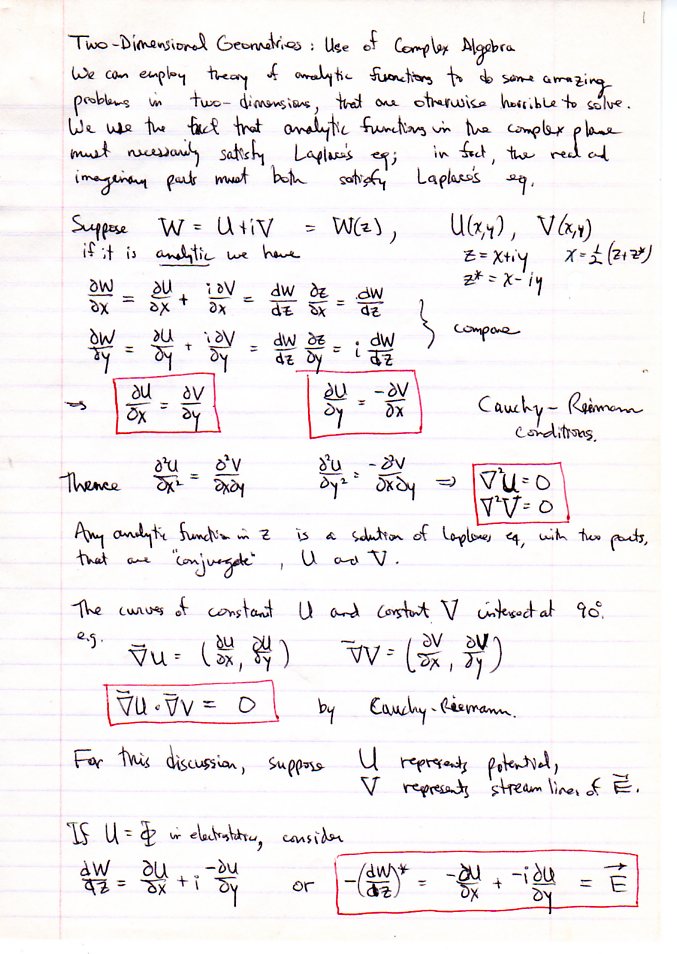 1
Two-Dimensional Geometries: Use of Complex Algebra
We can employ theory of analytic functions to do some amazing
problems in two-dimensions, that are otherwise horrible to solve.
We use the fact that analytic functions in the complex plane
must necessarily satisfy Laplace's eq; in fact, the real and
imaginary parts must both satisfy Laplace's eq.
Suppose W = U+iV = W(z), U(x,y), V(x,y)
if it is analytic we have z = x+iy x = ½(z+z*)
z* = x-iy
∂W/∂x = ∂U/∂x + i∂V/∂x = dW/dz ∂z/∂x = dW/dz
∂W/∂y = ∂U/∂y + i∂V/∂y = dW/dz ∂z/∂y = i dW/dz } compare
⇒ ∂U/∂x = ∂V/∂y ∂U/∂y = -∂V/∂x Cauchy-Reimann
conditions.
Thence ∂²U/∂x² = ∂²V/∂x∂y ∂²U/∂y² = -∂²V/∂x∂y ⇒ ∇²U = 0
∇²V = 0
Any analytic function in z is a solution of Laplaces eq, with two parts,
that are "conjugate", U and V.
The curves of constant U and constant V intersect at 90°.
e.g. ∇⃗U = (∂U/∂x, ∂U/∂y) ∇⃗V = (∂V/∂x, ∂V/∂y)
∇⃗U · ∇⃗V = 0 by Cauchy-Reimann.
For this discussion, suppose U represents potential,
V represents stream lines of E⃗.
If U = Φ in electrostatics, consider
dW/dz = ∂U/∂x + i -∂U/∂y or -(dW/dz)* = -∂U/∂x + -i∂U/∂y = E⃗